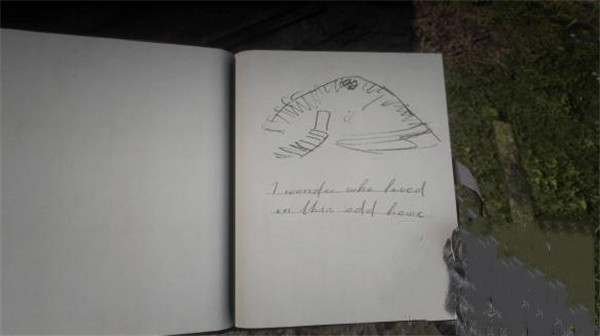 I wonder who lived
in this odd home